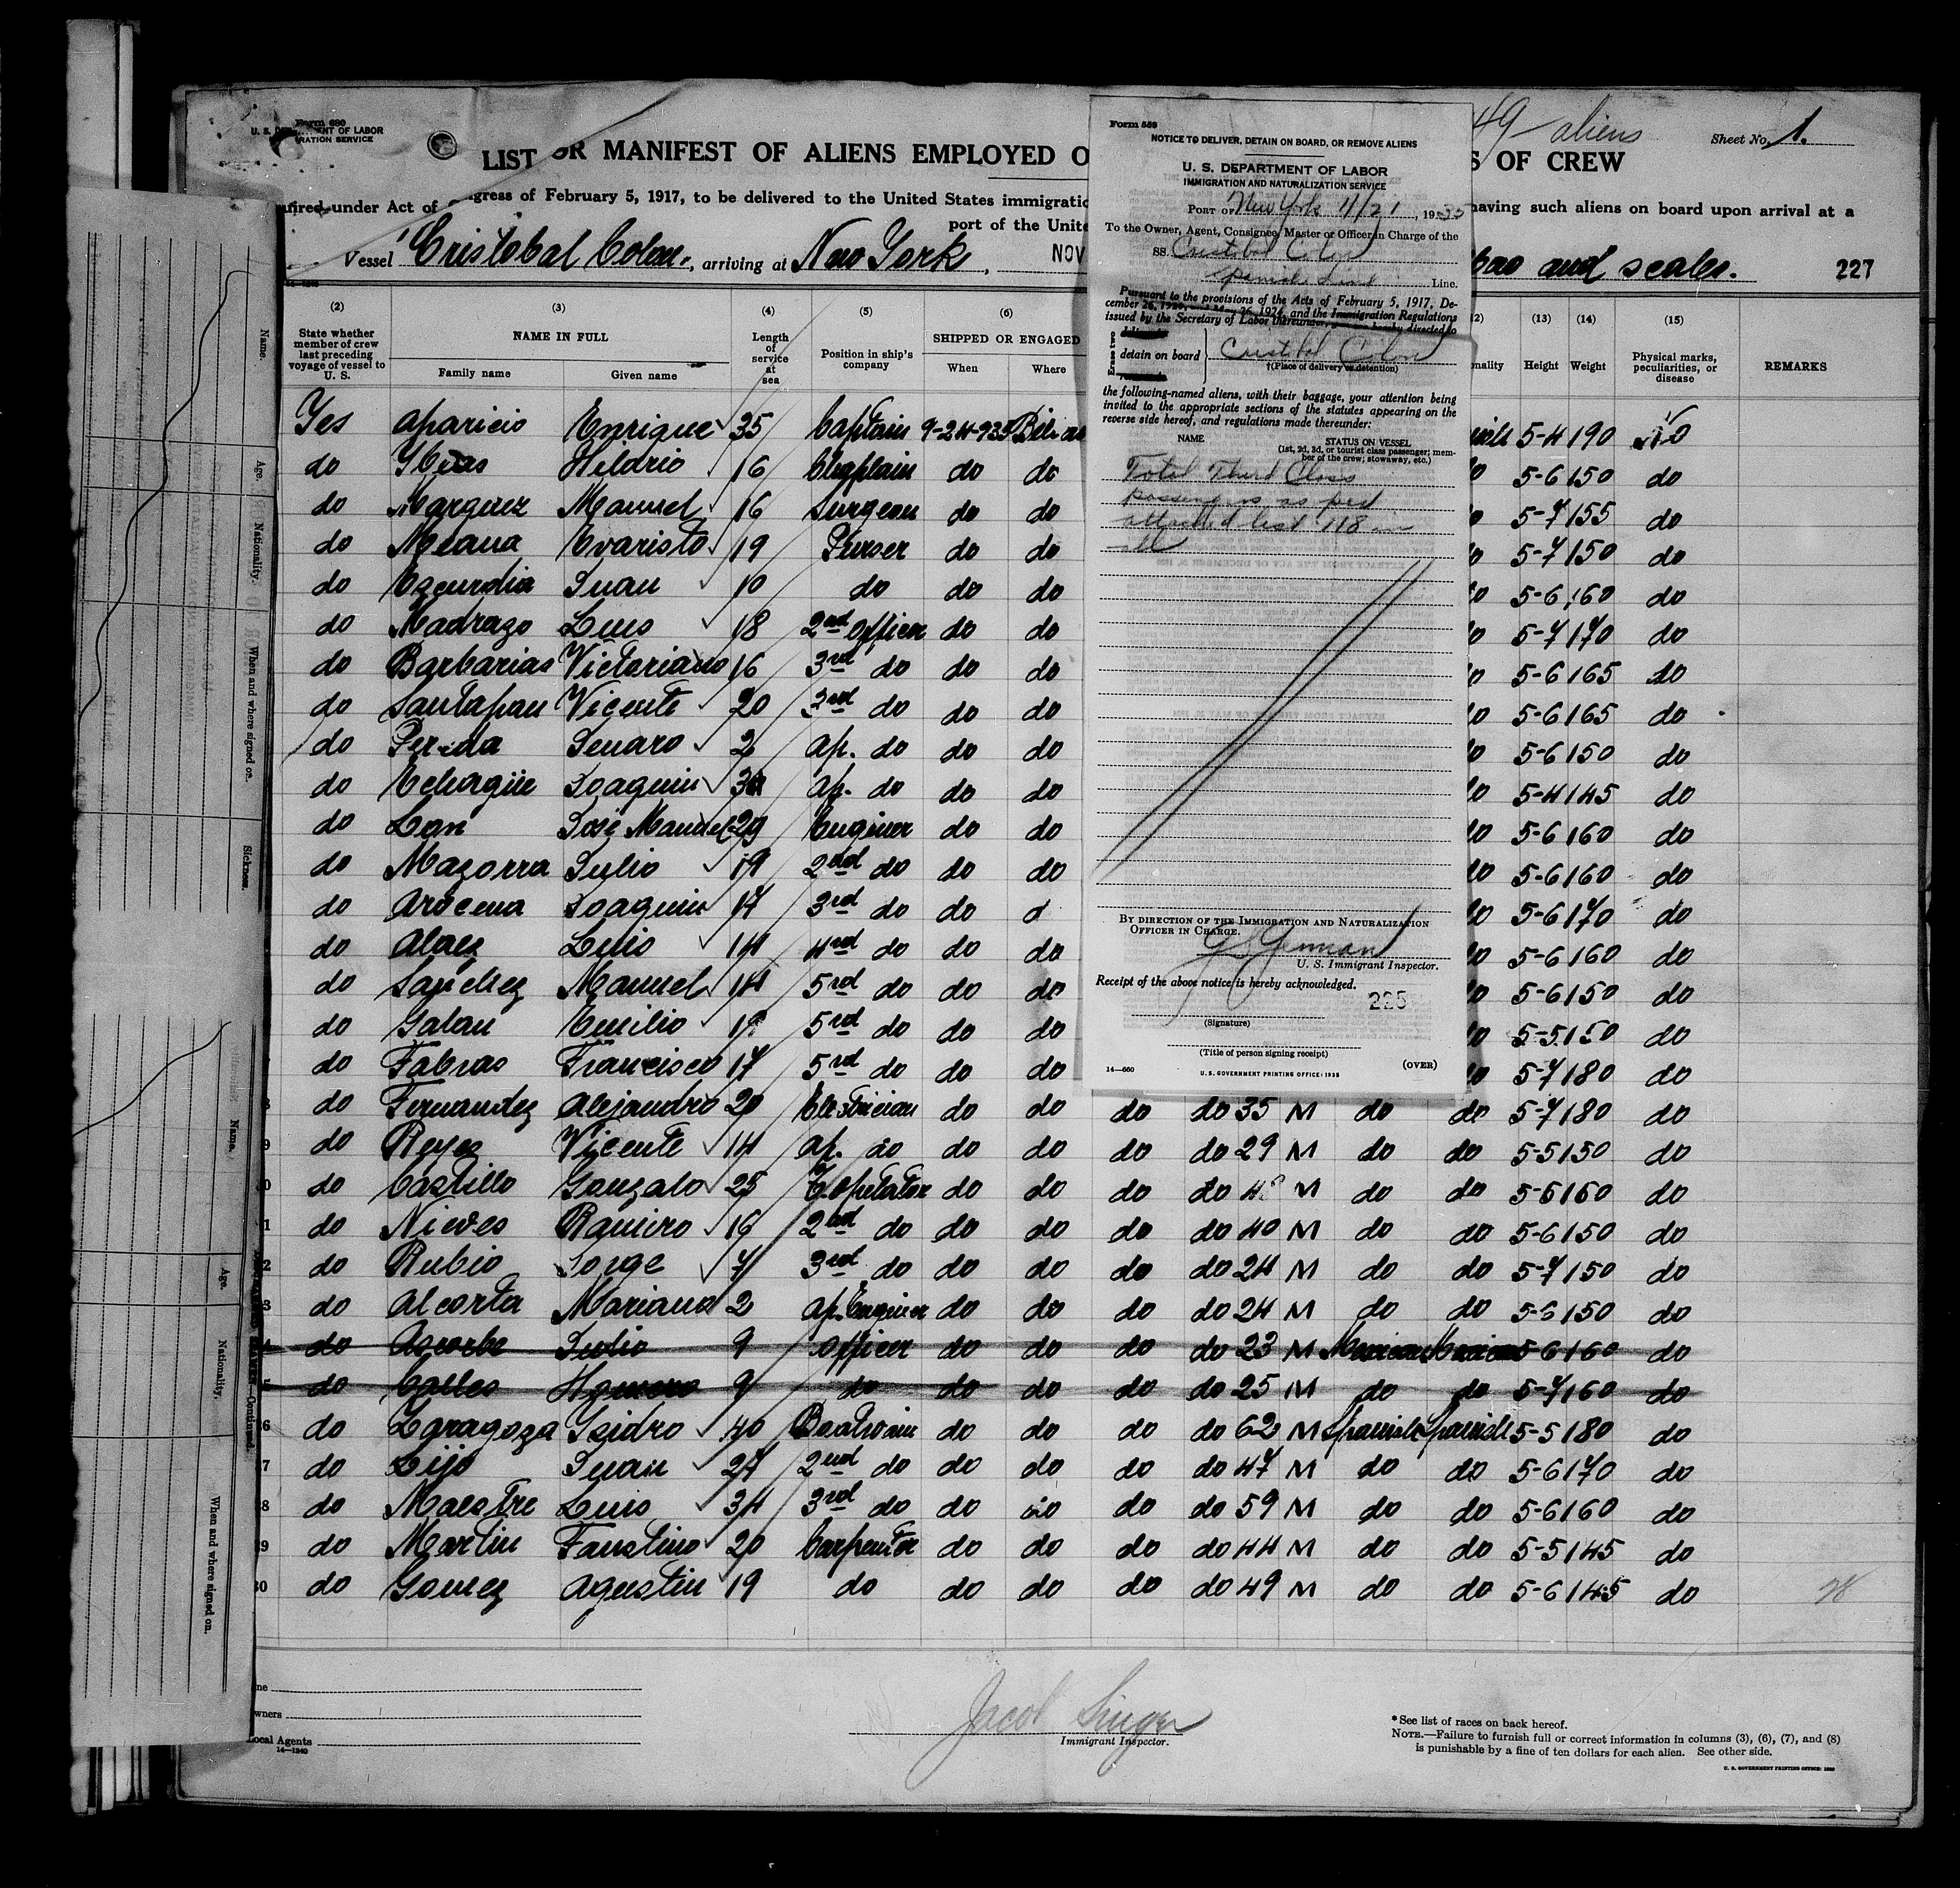 Form 680
U. S. DEP NT OF LABOR
RATION SERVICE
LIST OR MANIFEST OF ALIENS EMPLOYED O
S OF CREW
49 aliens
Sheet No. 1.
uired under Act of ngress of February 5, 1917, to be delivered to the United States immigratio
having such aliens on board upon arrival at a
port of the Unite
Vessel Cristobal Colon, arriving at New York, NOV
bao and scales. 227
14—1240
(2) (3) (4) (5) (6)
State whether member of crew last preceding voyage of vessel to U. S.
NAME IN FULL
Family name Given name
Length of service at sea
Position in ship's company
SHIPPED OR ENGAGED
When Where
2) (13) (14) (15)
onality Height Weight Physical marks, peculiarities, or disease REMARKS
Yes Aparicio Enrique 35 Captain 9-24-935 Bilbao 5-4 190 No
do Hilario 16 Chaplain do do 5-6 150 do
do Marquez Manuel 16 Surgeon do do 5-7 155 do
do Meana Evaristo 19 Purser do do 5-7 150 do
do Juan 10 do do do 5-6 160 do
do Madrazo Luis 18 2nd Officer do do 5-7 170 do
do Barbarias Victoriano 16 3rd do do do 5-6 165 do
do Vicente 20 3rd do do do 5-6 165 do
do Pereda Jenaro 2 ap. do do do 5-6 150 do
do Echagüe Joaquin ap. do do do 5-4 145 do
do José Manuel 29 Enginer do do 5-6 160 do
do Mazorra Julio 19 2nd do do do 5-6 160 do
do Arocena Joaquin 17 3rd do do d 5-6 170 do
do Alaez Luis 14 4rd do do do 5-6 160 do
do Sanchez Manuel 14 5rd do do do 5-6 150 do
do Galan Emilio 5rd do do do 5-5 150 do
do Fabras Francisco 17 5rd do do do 5-7 180 do
do Fernandez Alejandro 20 Electrician do do do do 35 M do do 5-7 180 do
9 do Reyes Vicente 14 ap. do do do do do 29 M do do 5-5 150 do
0 do Castillo Gonzalo 25 do do do do M do do 5-6 160 do
1 do Nieves Ramiro 16 2nd do do do do do 40 M do do 5-6 150 do
2 do Rubio Jorge 7 3rd do do do do do 24 M do do 5-7 150 do
3 do Alcorta Mariano 2 ap. Enginer do do do do 24 M do do 5-6 150 do
4 do Julio 9 Officer do do do do 23 M Mexican Mexican 5-6 160 do
5 do Homero 9 do do do do do 25 M do do 5-7 160 do
6 do Zaragoza Ysidro 40 Boatswain do do do do 62 M Spanish Spanish 5-5 180 do
7 do Lijo Juan 27 2nd do do do do do 47 M do do 5-6 170 do
8 do Maestre Luis 34 3rd do do do do do 59 M do do 5-6 160 do
9 do Martin Faustino 20 Carpenter do do do do 44 M do do 5-5 145 do
30 do Gomez Agustin 19 do do do do do 49 M do do 5-6 145 do
28
ne
wners
Local Agents
14—1240
Jacob Singer
Immigrant Inspector.
* See list of races on back hereof.
NOTE.—Failure to furnish full or correct information in columns (3), (6), (7), and (8)
is punishable by a fine of ten dollars for each alien. See other side.
Form 559
NOTICE TO DELIVER, DETAIN ON BOARD, OR REMOVE ALIENS
U. S. DEPARTMENT OF LABOR
IMMIGRATION AND NATURALIZATION SERVICE
PORT OF New York 11/21, 1935
To the Owner, Agent, Consignee, Master or Officer in Charge of the
SS. Cristobal Colon
Spanish Line Line.
Pursuant to the provisions of the Acts of February 5, 1917, De-
cember 26, 1920, and May 26, 1924, and the Immigration Regulations
issued by the Secretary of Labor thereunder, you are hereby directed to
Erase two
detain on board Cristobal Colon
†(Place of delivery or detention)
the following-named aliens, with their baggage, your attention being
invited to the appropriate sections of the statutes appearing on the
reverse side hereof, and regulations made thereunder:
NAME STATUS ON VESSEL
(1st, 2d, 3d, or tourist class passenger; mem-
ber of the crew; stowaway, etc.)
Total Third Class
passengers as per
attached list 118 in
all
BY DIRECTION OF THE IMMIGRATION AND NATURALIZATION
OFFICER IN CHARGE.
U. S. Immigrant Inspector.
Receipt of the above notice is hereby acknowledged.
225
(Signature)
(Title of person signing receipt)
14—660 U. S. GOVERNMENT PRINTING OFFICE: 1935 (OVER)
Name.
Age.
Nationality.
When and where signed on.
Sickness.
Name.
Age.
Nationality.
When and where signed on.